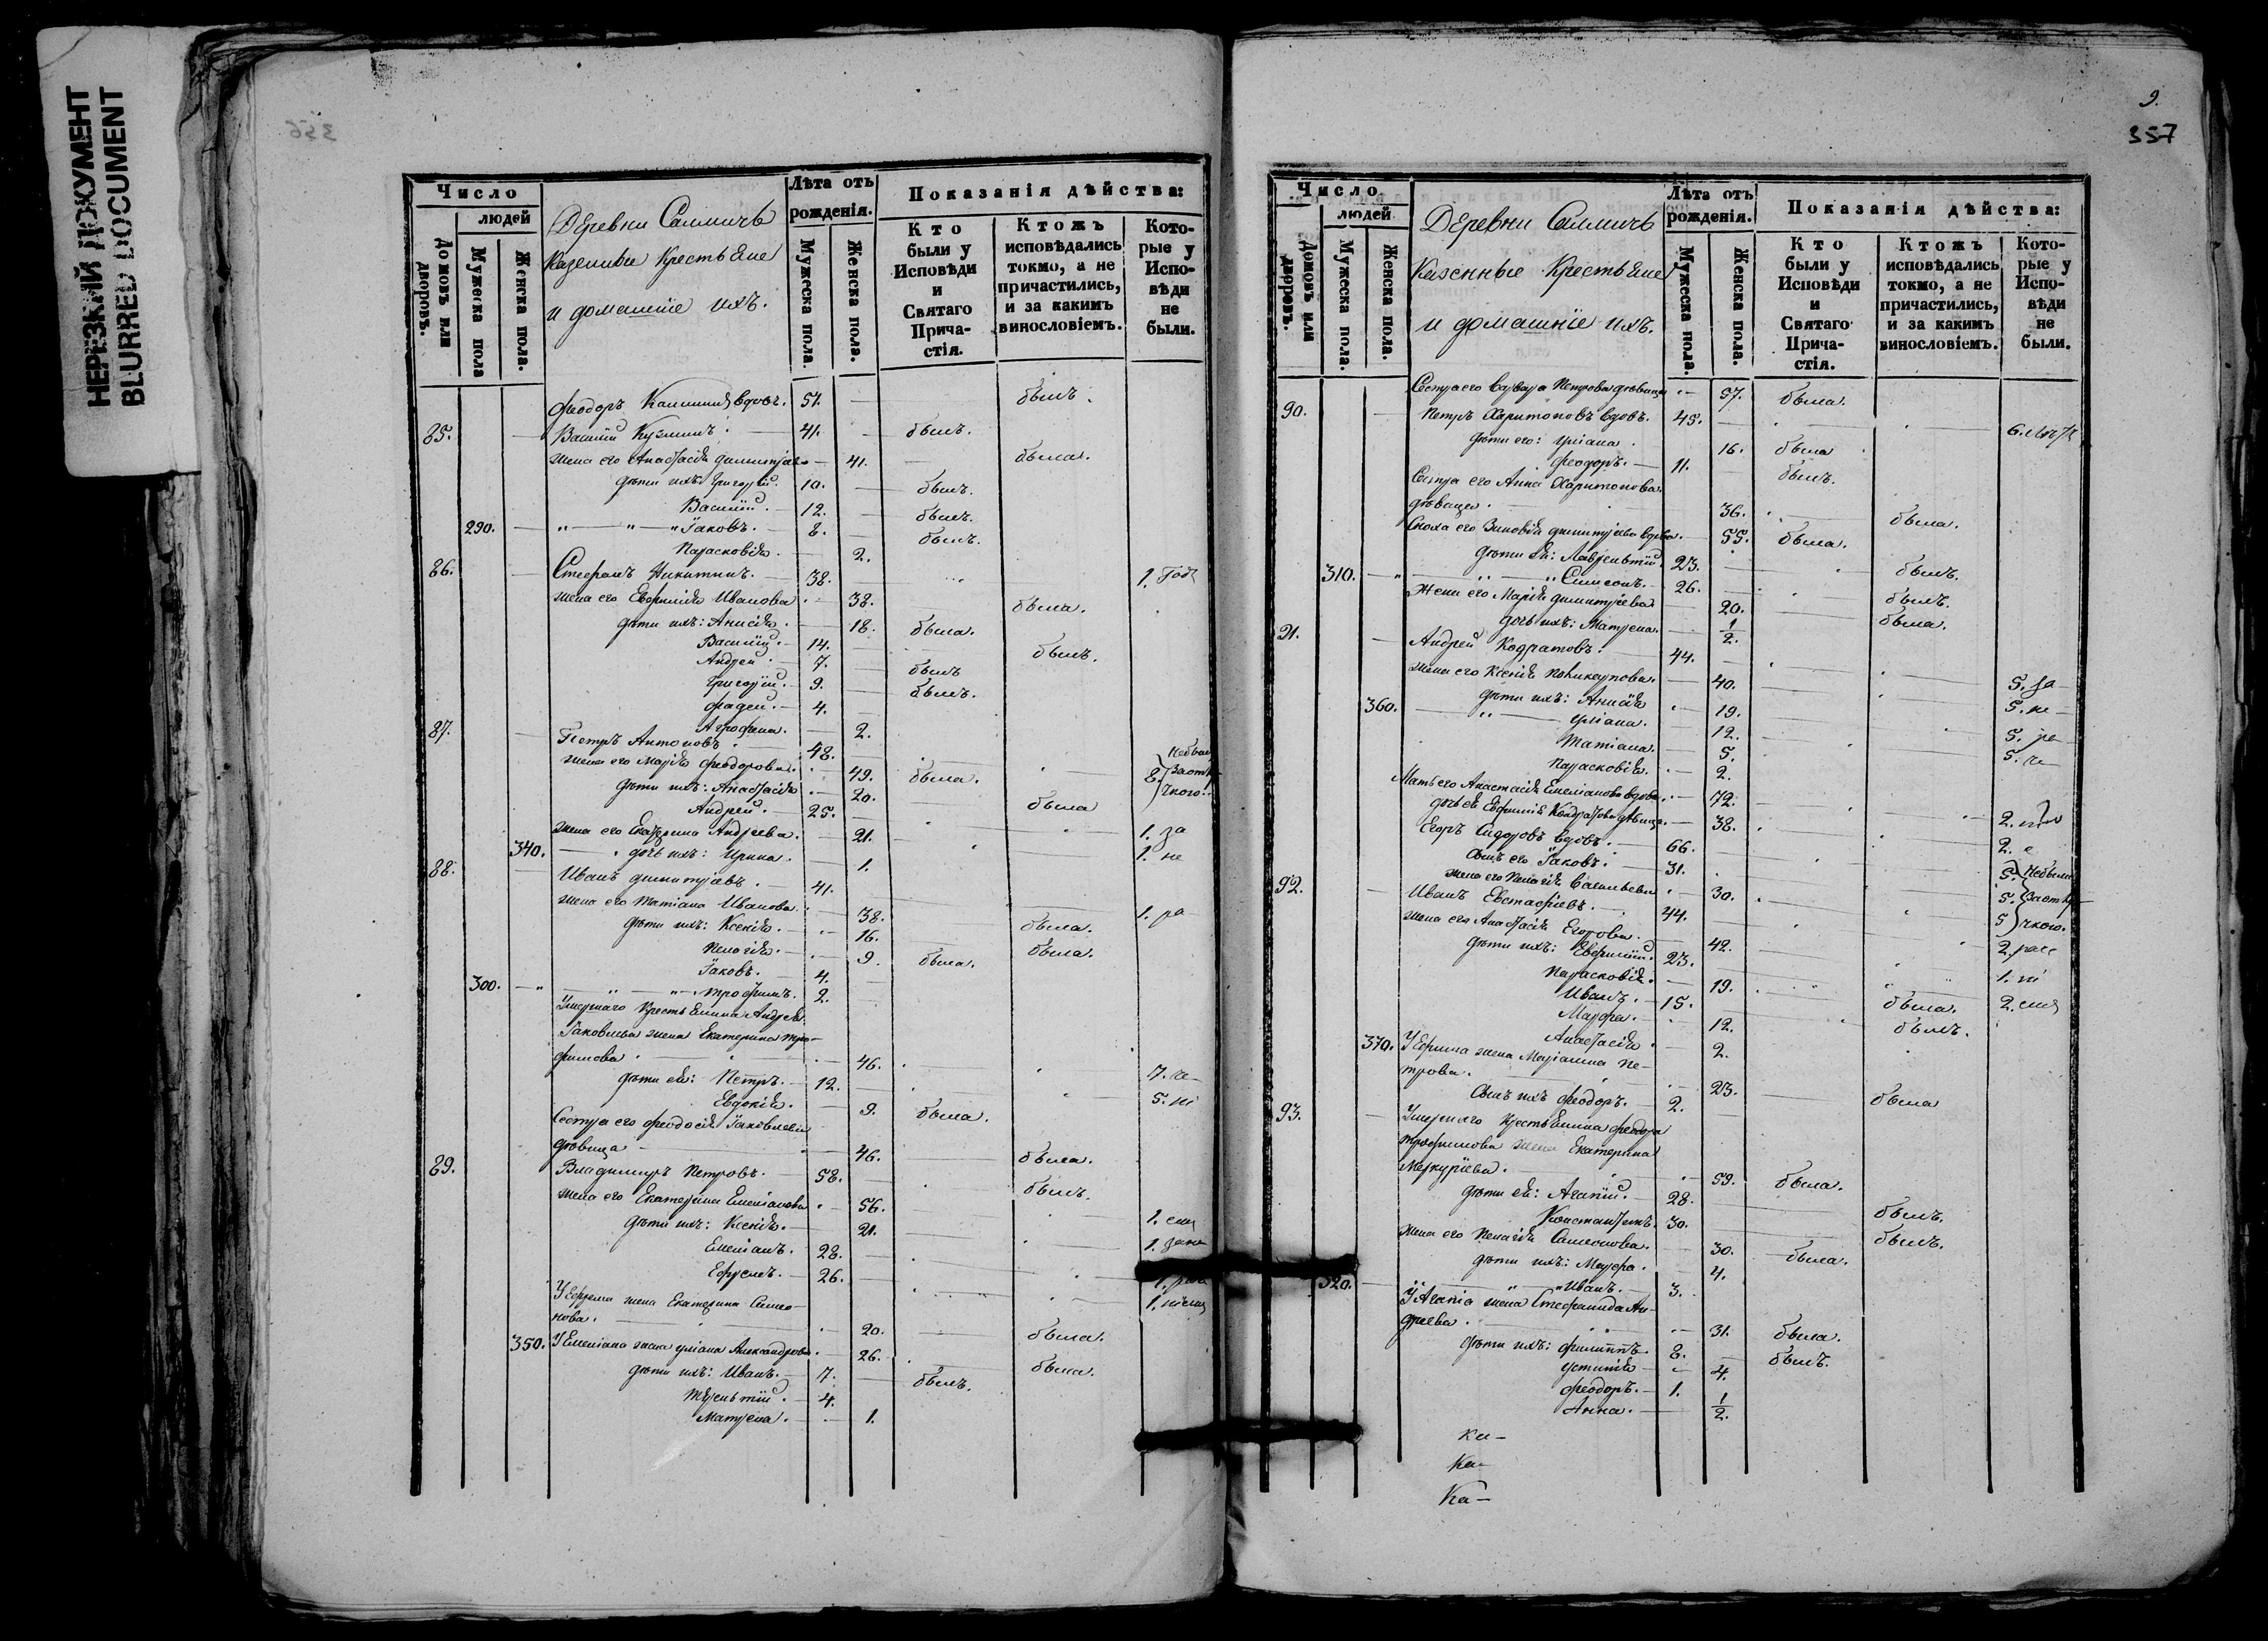 НЕРЕЗКИЙ ДОКУМЕНТ
BLURRED DOCUMENT
356
Число
людей
Домовъ или дворовъ.
Мужеска пола
Женска пола.
Деревни
Казенные Крестьяне
и домашніе ихъ.
Лѣта отъ рожденія.
Мужеска пола.
Женска пола.
Показанія дѣйства:
Кто были у Исповѣди и Святаго Причастія.
Ктожъ исповѣдались токмо, а не причастились, и за какимъ винословіемъ.
Которые у Исповѣди не были.
Феодоръ Калининъ вдовъ. 51. былъ.
85. Василій Кузминъ. 41. былъ.
жена его Анастасія Димитріева 41. была.
дѣти ихъ: Григорій. 10. былъ.
Василій. 12. былъ.
290. " " Іаковъ. 8. былъ.
Парасковія. 2.
86. Стефанъ Никитинъ. 38. 1. годъ
жена его Евфимія Иванова 38. была.
дѣти ихъ: Анисія. 18. была.
Василій. 14. былъ.
Андрей. 7. былъ
Григорій. 9. былъ.
Фадей. 4.
Агрофена. 2.
87. Петръ Антоновъ. 48. 8.
жена его Марія Феодорова. 49. была.
дѣти ихъ: Анастасія 20. была
Андрей. 25.
жена его Екатерина Андреева. 21. 1. за
340. дочь ихъ: Ирина. 1. 1. не
88. Иванъ Димитріевъ. 41.
жена его Татіана Иванова. 38. 1. ра
дѣти ихъ: Ксенія. 16. была.
Пелагія. 9. была. была.
Іаковъ. 4.
300. " " Трофимъ. 2.
Умершаго Крестьянина Андрея
Іаковлева жена Екатерина Тро-
фимова. 46. 7. че-
дѣти ея: Петръ. 12. 5. ні
Евдокія. 9. была.
Сестра его Феодосія Іаковлева
дѣвица 46. была.
89. Владимиръ Петровъ. 58. былъ.
жена его Екатерина Емеліанова 56.
дѣти ихъ: Ксенія. 21. 1.
Емеліанъ. 28. 1.
Ефремъ. 26. 1.
У Ефрема жена Екатерина Симео-
нова. 20. 1. была.
350. У Емеліана жена Уліана Александрова. 26. была.
дѣти ихъ: Иванъ. 7. былъ.
Терентій. 4.
Матрена. 1.
9.
357
Число
людей
Домовъ или дворовъ.
Мужеска пола.
Женска пола.
Деревни
Казенные Крестьяне
и домашніе ихъ.
Лѣта отъ рожденія.
Мужеска пола.
Женска пола.
Показанія дѣйства:
Кто были у Исповѣди и Святаго Причастія.
Ктожъ исповѣдались токмо, а не причастились, и за какимъ винословіемъ.
Которые у Исповѣди не были.
Сестра его Варвара Петрова дѣвица 57. была.
90. Петръ Харитоновъ вдовъ. 45. 6.
дѣти его: Уліана. 16. была
Феодоръ. 11. былъ.
Сестра его Анна Харитонова
дѣвица. 36. была.
Сноха его Зиновія Димитріева вдова. 55. была.
дѣти ея: Лаврентій. 23. былъ.
310. " " Симеонъ. 26. былъ.
Жена его Марія Димитріева 20. была.
дочь ихъ: Матрена. 1/2.
91. Андрей Кодратовъ. 44.
жена его Ксенія Поликарпова. 40. 5. за
дѣти ихъ: Анисія 19. 5. не
360. " Уліана. 12. 5. ра
Татіана. 5. 5. че
Парасковія. 2.
Мать его Анастасія Емеліанова вдова. 72. 2.
дочь ея Евфимія Кондратова дѣвица. 38. 2.
Егоръ Сидоровъ вдовъ. 66. 5. Небыли
Сынъ его Іаковъ. 31. 5.
жена его Пелагія Васильева 30. 5.
92. Иванъ Евстафіевъ. 44. 2.
жена его Анастасія Егорова. 42. 1. ні
дѣти ихъ: Евфимій. 23. 2.
Парасковія. 19. была.
Иванъ. 15. былъ.
Марфа. 12.
370. Анастасія. 2.
У Ефима жена Маріанна Пе-
трова. 23. была
Сынъ ихъ Феодоръ. 2.
93. Умершаго Крестьянина Феодора
Трофимова жена Екатерина
Меркуріева. 59. была.
дѣти ея: Агапій. 28. былъ.
Константинъ. 30. былъ.
жена его Пелагія Симеонова. 30. была.
дѣти ихъ: Марфа. 4.
320. " " Иванъ. 3.
У Агапія жена Стефанида Ан-
дреева. 31. была.
дѣти ихъ: Филиппъ. 8. былъ.
Устинія 4.
Феодоръ. 1.
Анна. 1/2.
Ка-
Ка-
Ка-